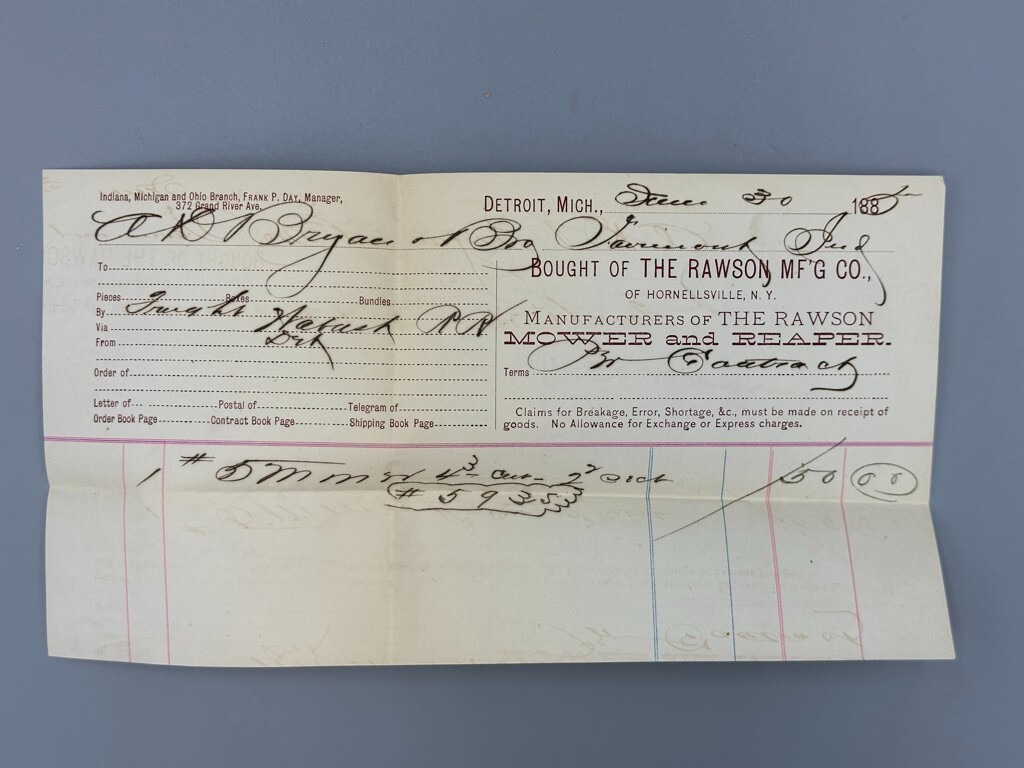 Indiana, Michigan and Ohio Branch, Frank P. Day, Manager,
372 Grand River Ave.
Detroit, Mich., 30 1885
A D Bryan Bro Fairmount Ind
To
Bought of The Rawson Mf'g Co.,
of Hornellsville, N. Y.
Manufacturers of The Rawson
Mower and Reaper.
Pieces Boxes Bundles
By
Via Wabash R R
From Det
Order of
Terms Contract
Letter of Postal of Telegram of
Order Book Page Contract Book Page Shipping Book Page
Claims for Breakage, Error, Shortage, &c., must be made on receipt of
goods. No Allowance for Exchange or Express charges.
1 # 5 4 3 Cut 2 2 50 00
# 5935